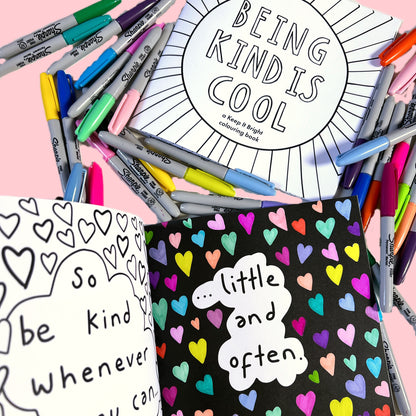 BEING
KIND IS
COOL
a Keep it Bright
colouring book
Sharpie
So
be kind
whenever
you can
...little
and
often.